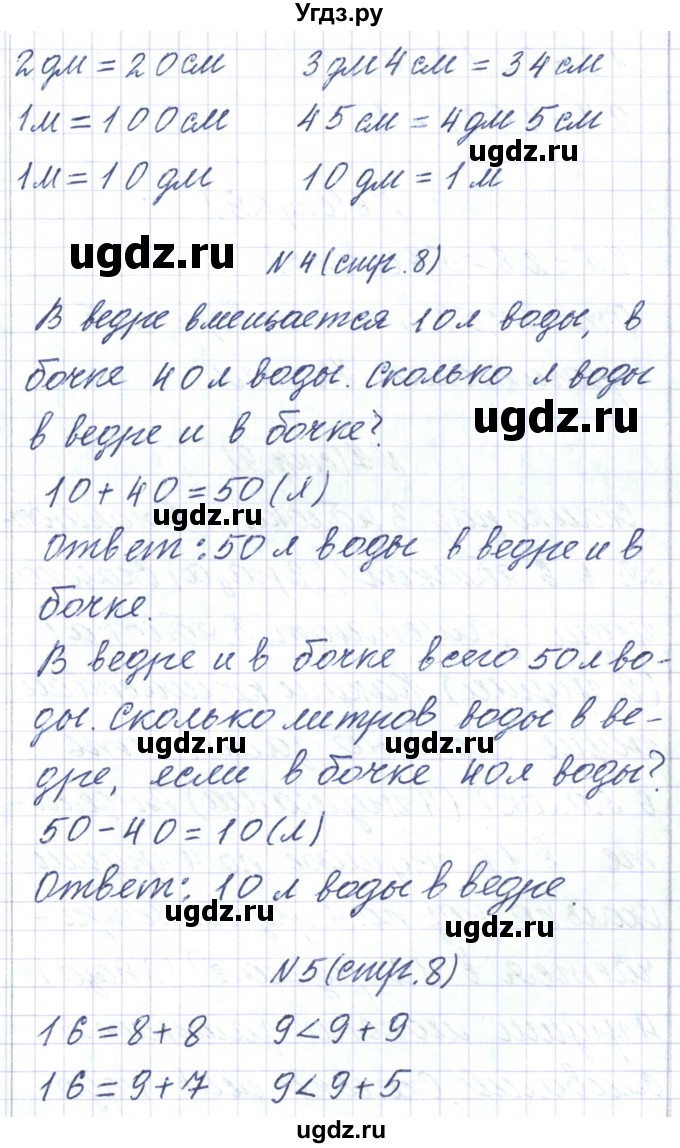 Угдз.ру
2дм = 20см 3дм 4см = 34см
1м = 100см 45см = 4дм 5см
ugdz.ru
1м = 10дм 10дм = 1м
ugdz.ru
N4(стр.8)
В ведре вмещается 10л воды, в
бочке 40л воды. Сколько л воды
ugdz.ru
в ведре и в бочке?
10+40=50(л)
ugdz.ru
Ответ: 50л воды в ведре и в
бочке.
В ведре и в бочке всего 50л во-
ды. Сколько литров воды в ве-
ugdz.ru ugdz.ru
дре, если в бочке 40л воды?
50-40=10(л)
Ответ: 10л воды в ведре.
ugdz.ru
ugdz.ru
N5(стр.8)
16=8+8 9<9+9
16=9+7 9<9+5
ugdz.ru